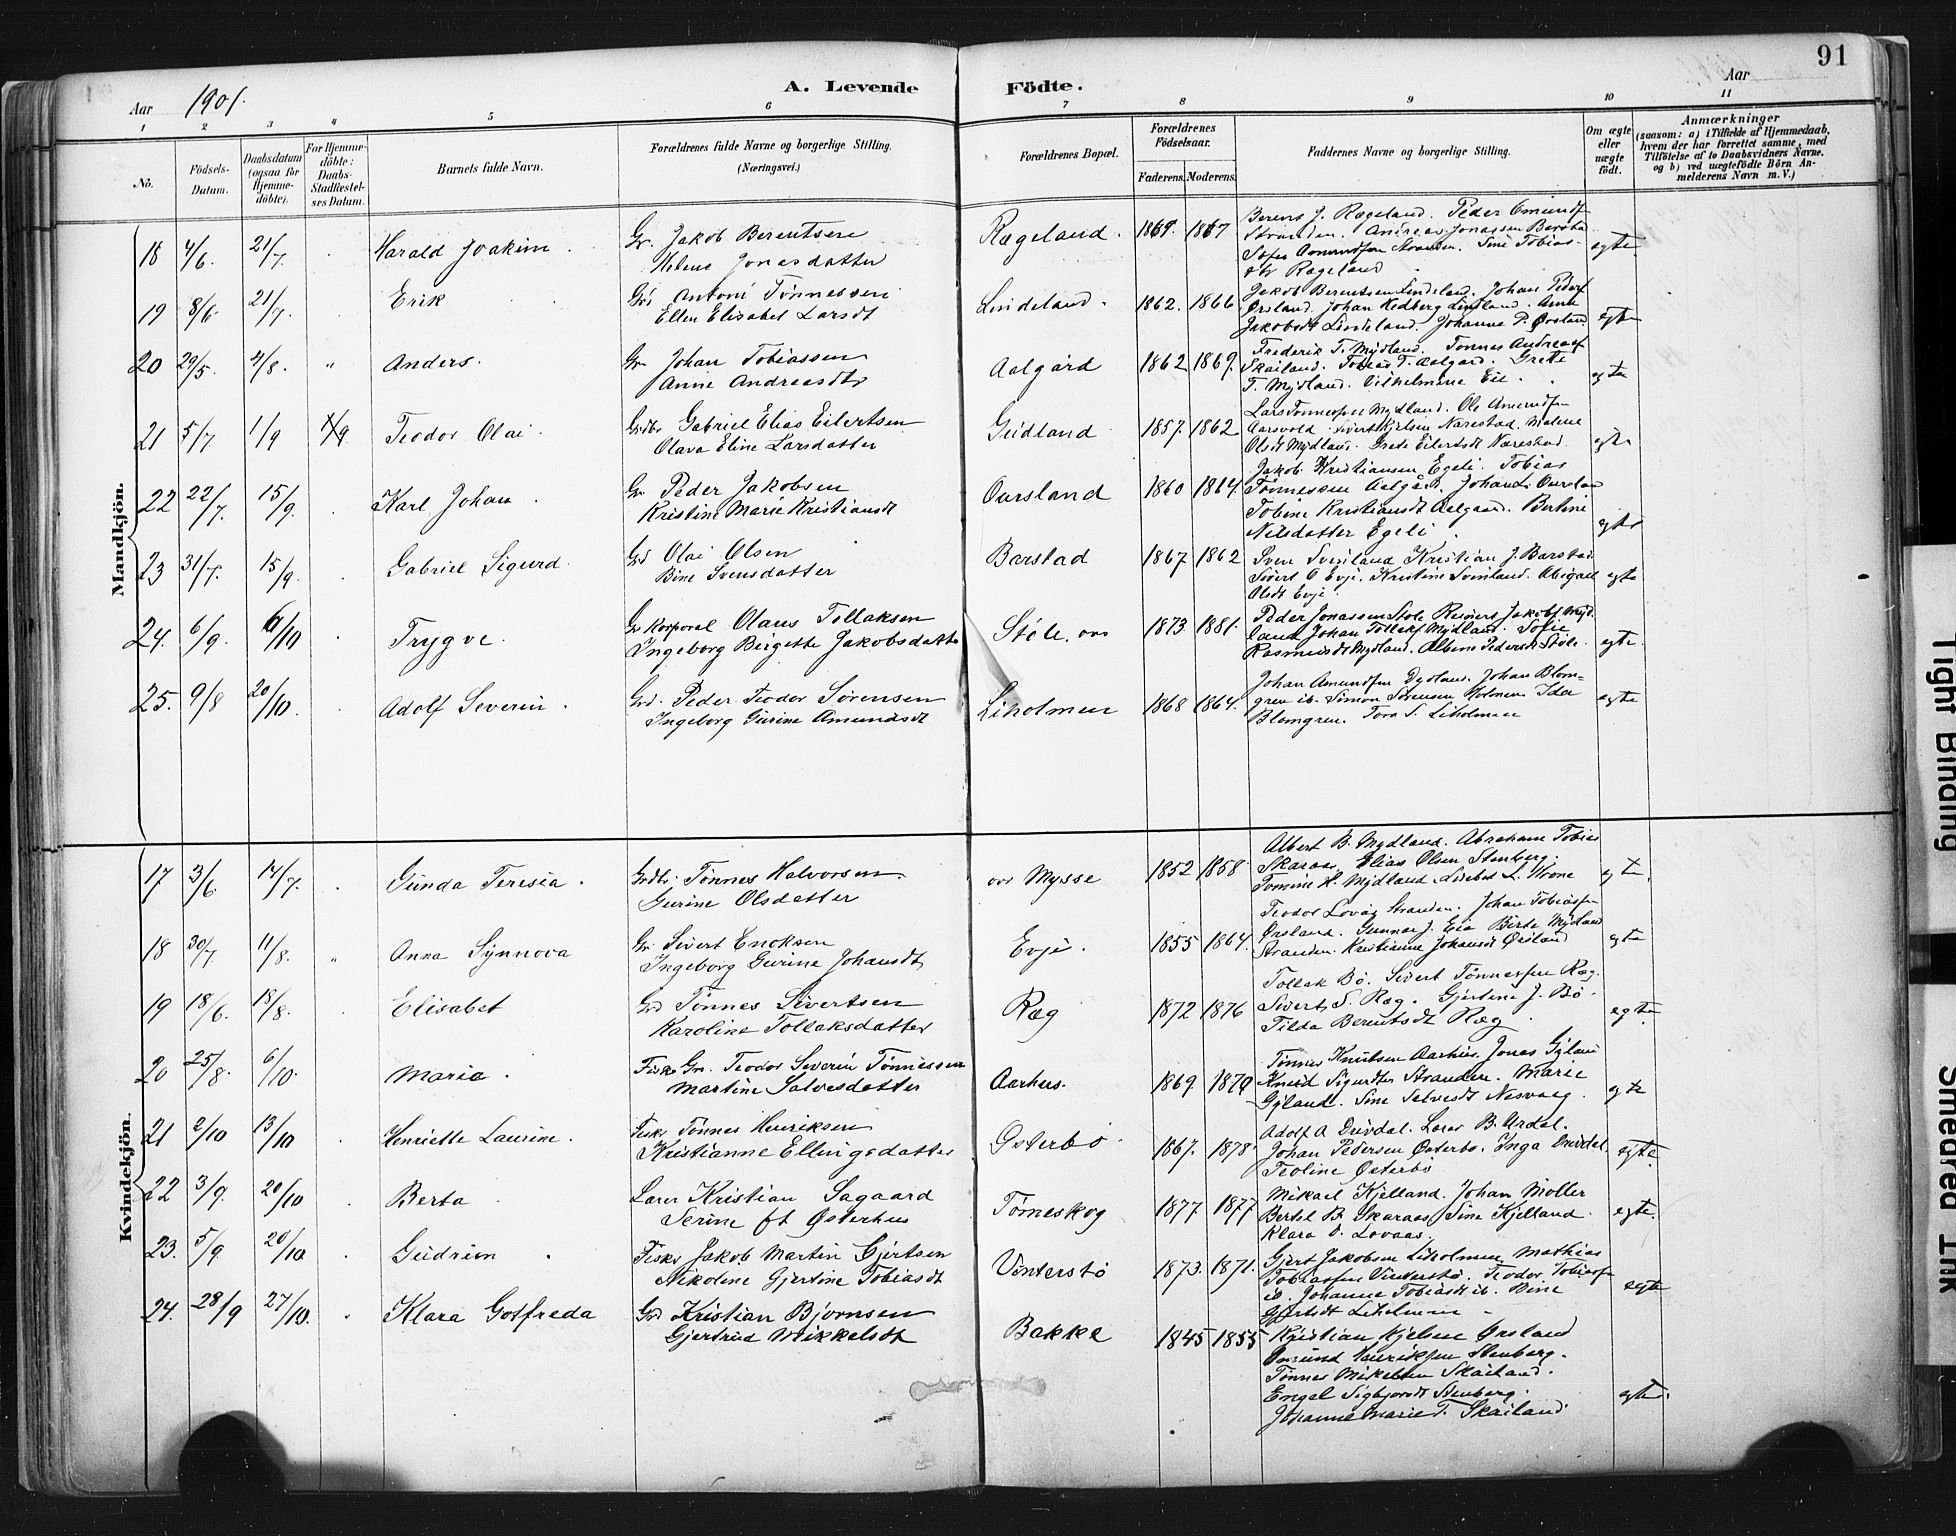 91
Aar 1901.
A. Levende Födte.
Aar
1 2 3 4 5 6 7 8 9 10 11
No.
Födsels-Datum.
Daabsdatum (ogsaa for Hjemme-döbte).
For Hjemme-döbte: Daabs-Stadfæstel-ses Datum.
Barnets fulde Navn.
Forældrenes fulde Navne og borgerlige Stilling.
(Næringsvei.)
Forældrenes Bopæl.
Forældrenes Födselsaar.
Faderens. Moderens.
Faddernes Navne og borgerlige Stilling.
Om ægte eller uægte födt.
Anmærkninger
(saasom: a) i Tilfælde af Hjemmedaab,
hvem der har forrettet samme, med
Tilföielse af to Daabsvidners Navne.
og b) ved uægtefödte Börn An-
melderens Navn m.V.)
Mandkjön.
18 4/6. 21/7. Harald Joakim. Gr. Jakob Berentsen
Helene Jonasdatter
Rægeland. 1869. 1867
Berent J. Rægeland. Peder Omundsn
Stranden. Andreas Jonassen
Sofie Aamundsen Stranden. Sine Tobias-
dtr Rægeland
egte
19 8/6 21/7. Erik Grd Antoni Tønnessen
Ellen Elisabet Larsdt
Lindeland. 1862. 1866
Jakob Berentsen Lindeland. Johan Peders
Ørsland. Johan Hedberg Lindland. Anna
Jakobsdt Lindeland. Johanne P. Ørsland
egte
20 29/5. 4/8. " Anders. Gr Johan Tobiassen
Anne Andreasdtr
Aalgård 1862 1869.
Frederik T. Mydland. Tønnes Andreas
Skailand. Tobias T. Aalgård. Grete
T. Mydland. Vilhelmine Eie.
egte
21 5/7 1/9 1/9 Teodor Olai. Grdbr Gabriel Elias Eilertsen
Olava Eline Larsdatter
Gudland 1857. 1862
Lars Tønnessen Mydland. Ole Amundsn
Aarsvold. Sivert Kjelsen Narestad. Malene
Olsdt Mydland. Grete Eilertsdt Narestad.
egte
22 22/7. 15/9. Karl Johan. Gr Peder Jakobsen
Kristine Marie Kristiansdt
Oursland 1860 1864.
Jakob Kristiansen Egeli. Tobias
Tønnessen Aalgård. Johan L. Oursland
Tobine Kristiansdt Aalgaard. Bertine
Nilsdatter Egeli.
egte
23 31/7. 15/9. Gabriel Sigurd. Grd Olai Olsen
Bine Svensdatter
Barstad 1867 1862
Sven Svenland Kristian J. Barstad
Sivert O Evje. Kristine Svenland. Abigael
Olsdt Evje
egte
24. 6/9. 6/10 Trygve. Gr Korporal Olaus Tollaksen
Ingeborg Birgitte Jakobsdatter
Støle. 1873 1881.
Peder Jonassen Støle Reinert Jakobs Myd.
land Johan Tollaks Mydland. Sofie
Rasmusdt Mydland. Albine Pedersdt Støle.
egte.
25. 9/8 20/10. Adolf Severin. Grd. Peder Teodor Sørensen
Ingeborg Gurine Amundsdt
Liholmen 1868 1864.
Johan Amundsen Dydland. Johan Blom=
gren ib. Simon Sørensen Holmen Ida
Blomgren. Tora S. Liholmen
egte
Kvindekjön.
17 3/6. 14/7. Gunda Teresia. Grdbr. Tønnes Halvorsen.
Gurine Olsdatter
Mysse 1852 1858.
Albert B. Mydland. Abraham Tobias
Skaraas Elias Olsen Stenberg.
Tomine H. Mydland. Lisebet L.
egte.
18 30/7. 11/8. " Anna Synnova Gr Sivert Enoksen
Ingeborg Gurine Johansdt
Evje. 1855 1864.
Teodor Lovåg Stranden. Johan Tobiassn
Ørsland. Gunnar J. Eia Birte Mydland
Stranden. Kristianne Johansdt Ørsland
egte
19 18/6. 18/8. Elisabet Grd Tønnes Sivertsen
Karoline Tollaksdatter
Ræg 1872 1876
Tollak Bö. Sivert Tønnessen Ræg.
Sivert S. Ræg. Gjertine J. Bö.
Tilda Berentsdt Ræg.
egte
20 25/8. 6/10. Maria. Fisker Gr. Teodor Severin Tønnessen
Martine Salvesdatter
Aarhus. 1869. 1879
Tønnes Knudsen Aarhus. Jonas Gyland
Knud Sigurdtr Stranden. Marie
Gyland. Sine Salvesdt Nesvaag.
egte
21 2/10 13/10 Henriette Laurine. Fisker Tønnes Henriksen
Kristianne Ellingsdatter
Osterbö. 1867. 1878.
Adolf A Drivdal. Lars B. Urdal.
Johan Pedersen Østerbø. Inga Drivdal
Teoline Østerbö
egte.
22 3/9. 20/10 Berta. Lærer Kristian Sagaard
Serine ft Østerhus
Tømeskog 1877 1877
Mikael Kjelland. Johan Moller
Bertel B. Skaraas. Sine Kjelland.
Klara O. Lovaas.
egte.
23. 5/9 20/10 Gudrun. Fisker Jakob Martin Gjertsen
Nikoline Gjertine Tobiasdt
Vinterstø 1873. 1871.
Gjert Jakobsen Liholmen Mathias
Tobiassen Vinterstø. Teodor Tobiassn
ib. Johanne Tobiasdt ib. Bine
Gjertsdt Liholmen -
egte
24. 28/9 27/10. Klara Gotfreda Grd Kristian Bjørnsen
Gjertrud Mikkelsdt
Bakke 1845 1855
Kristian Kjelsen Ørsland
Omund Henriksen Stenberg.
Tønnes Mikelsen Skailand.
Engel Sigbjornsdt Stenberg.
Johanne Marie T. Skailand
egte.
Tight Binding
Smeared Ink